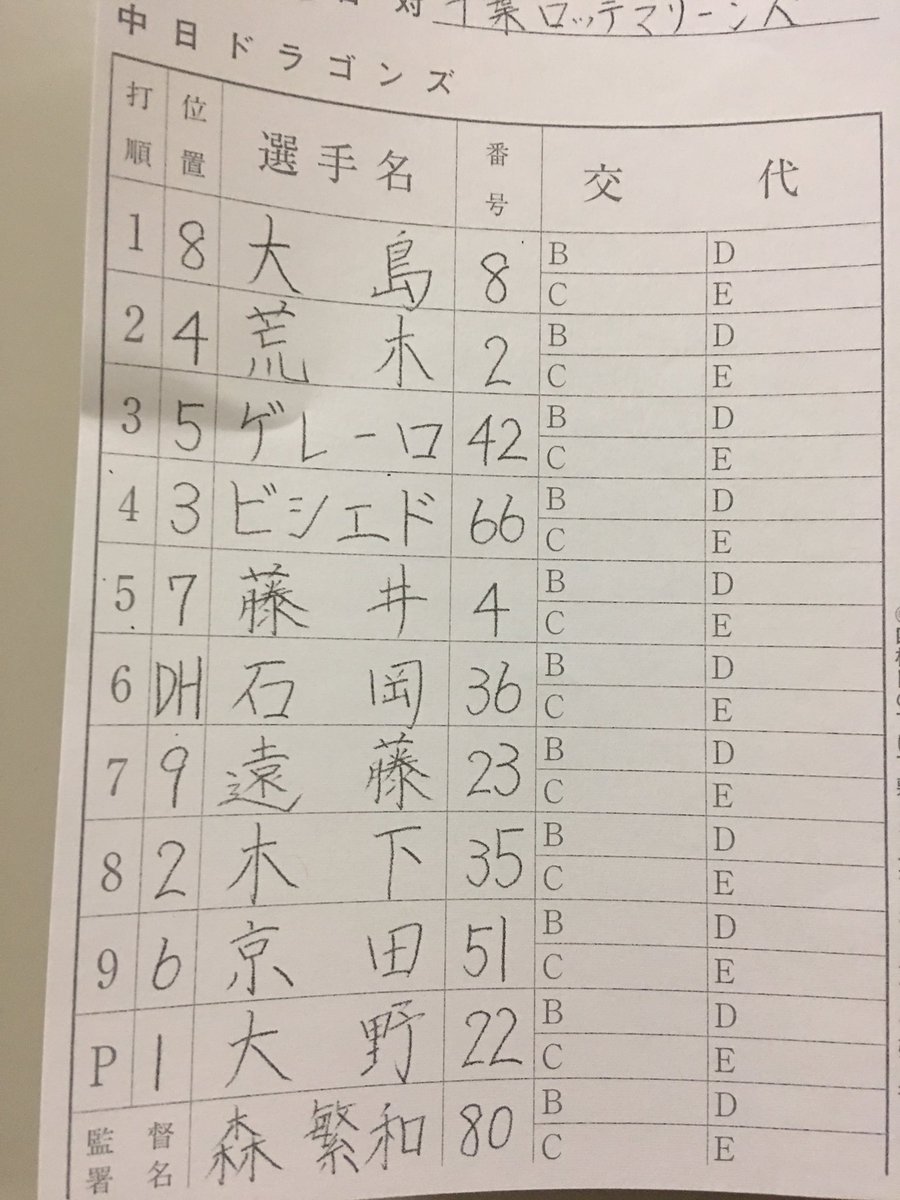 対 千葉ロッテマリーンズ
中日ドラゴンズ
打順 位置 選手名 番号 交代
1 8 大島 8 B D
C E
2 4 荒木 2 B D
C E
3 5 ゲレーロ 42 B D
C E
4 3 ビシエド 66 B D
C E
5 7 藤井 4 B D
C E
6 DH 石岡 36 B D
C E
7 9 遠藤 23 B D
C E
8 2 木下 35 B D
C E
9 6 京田 51 B D
C E
P 1 大野 22 B D
C E
監督署名 森繁和 80 B D
C E